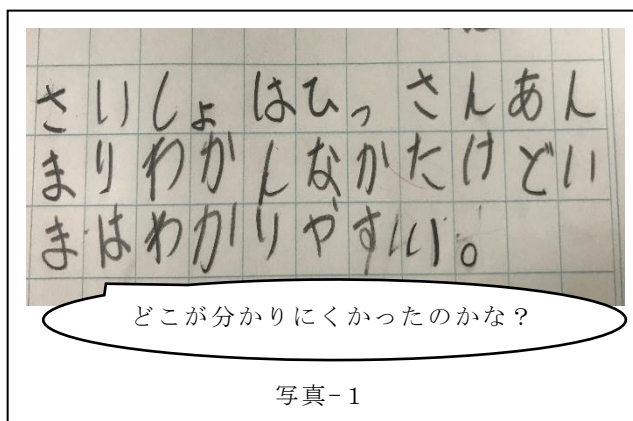 さいしょはひっさんあん
まりわかんなかたけどい
まはわかりやすい。
どこが分かりにくかったのかな？
写真-1